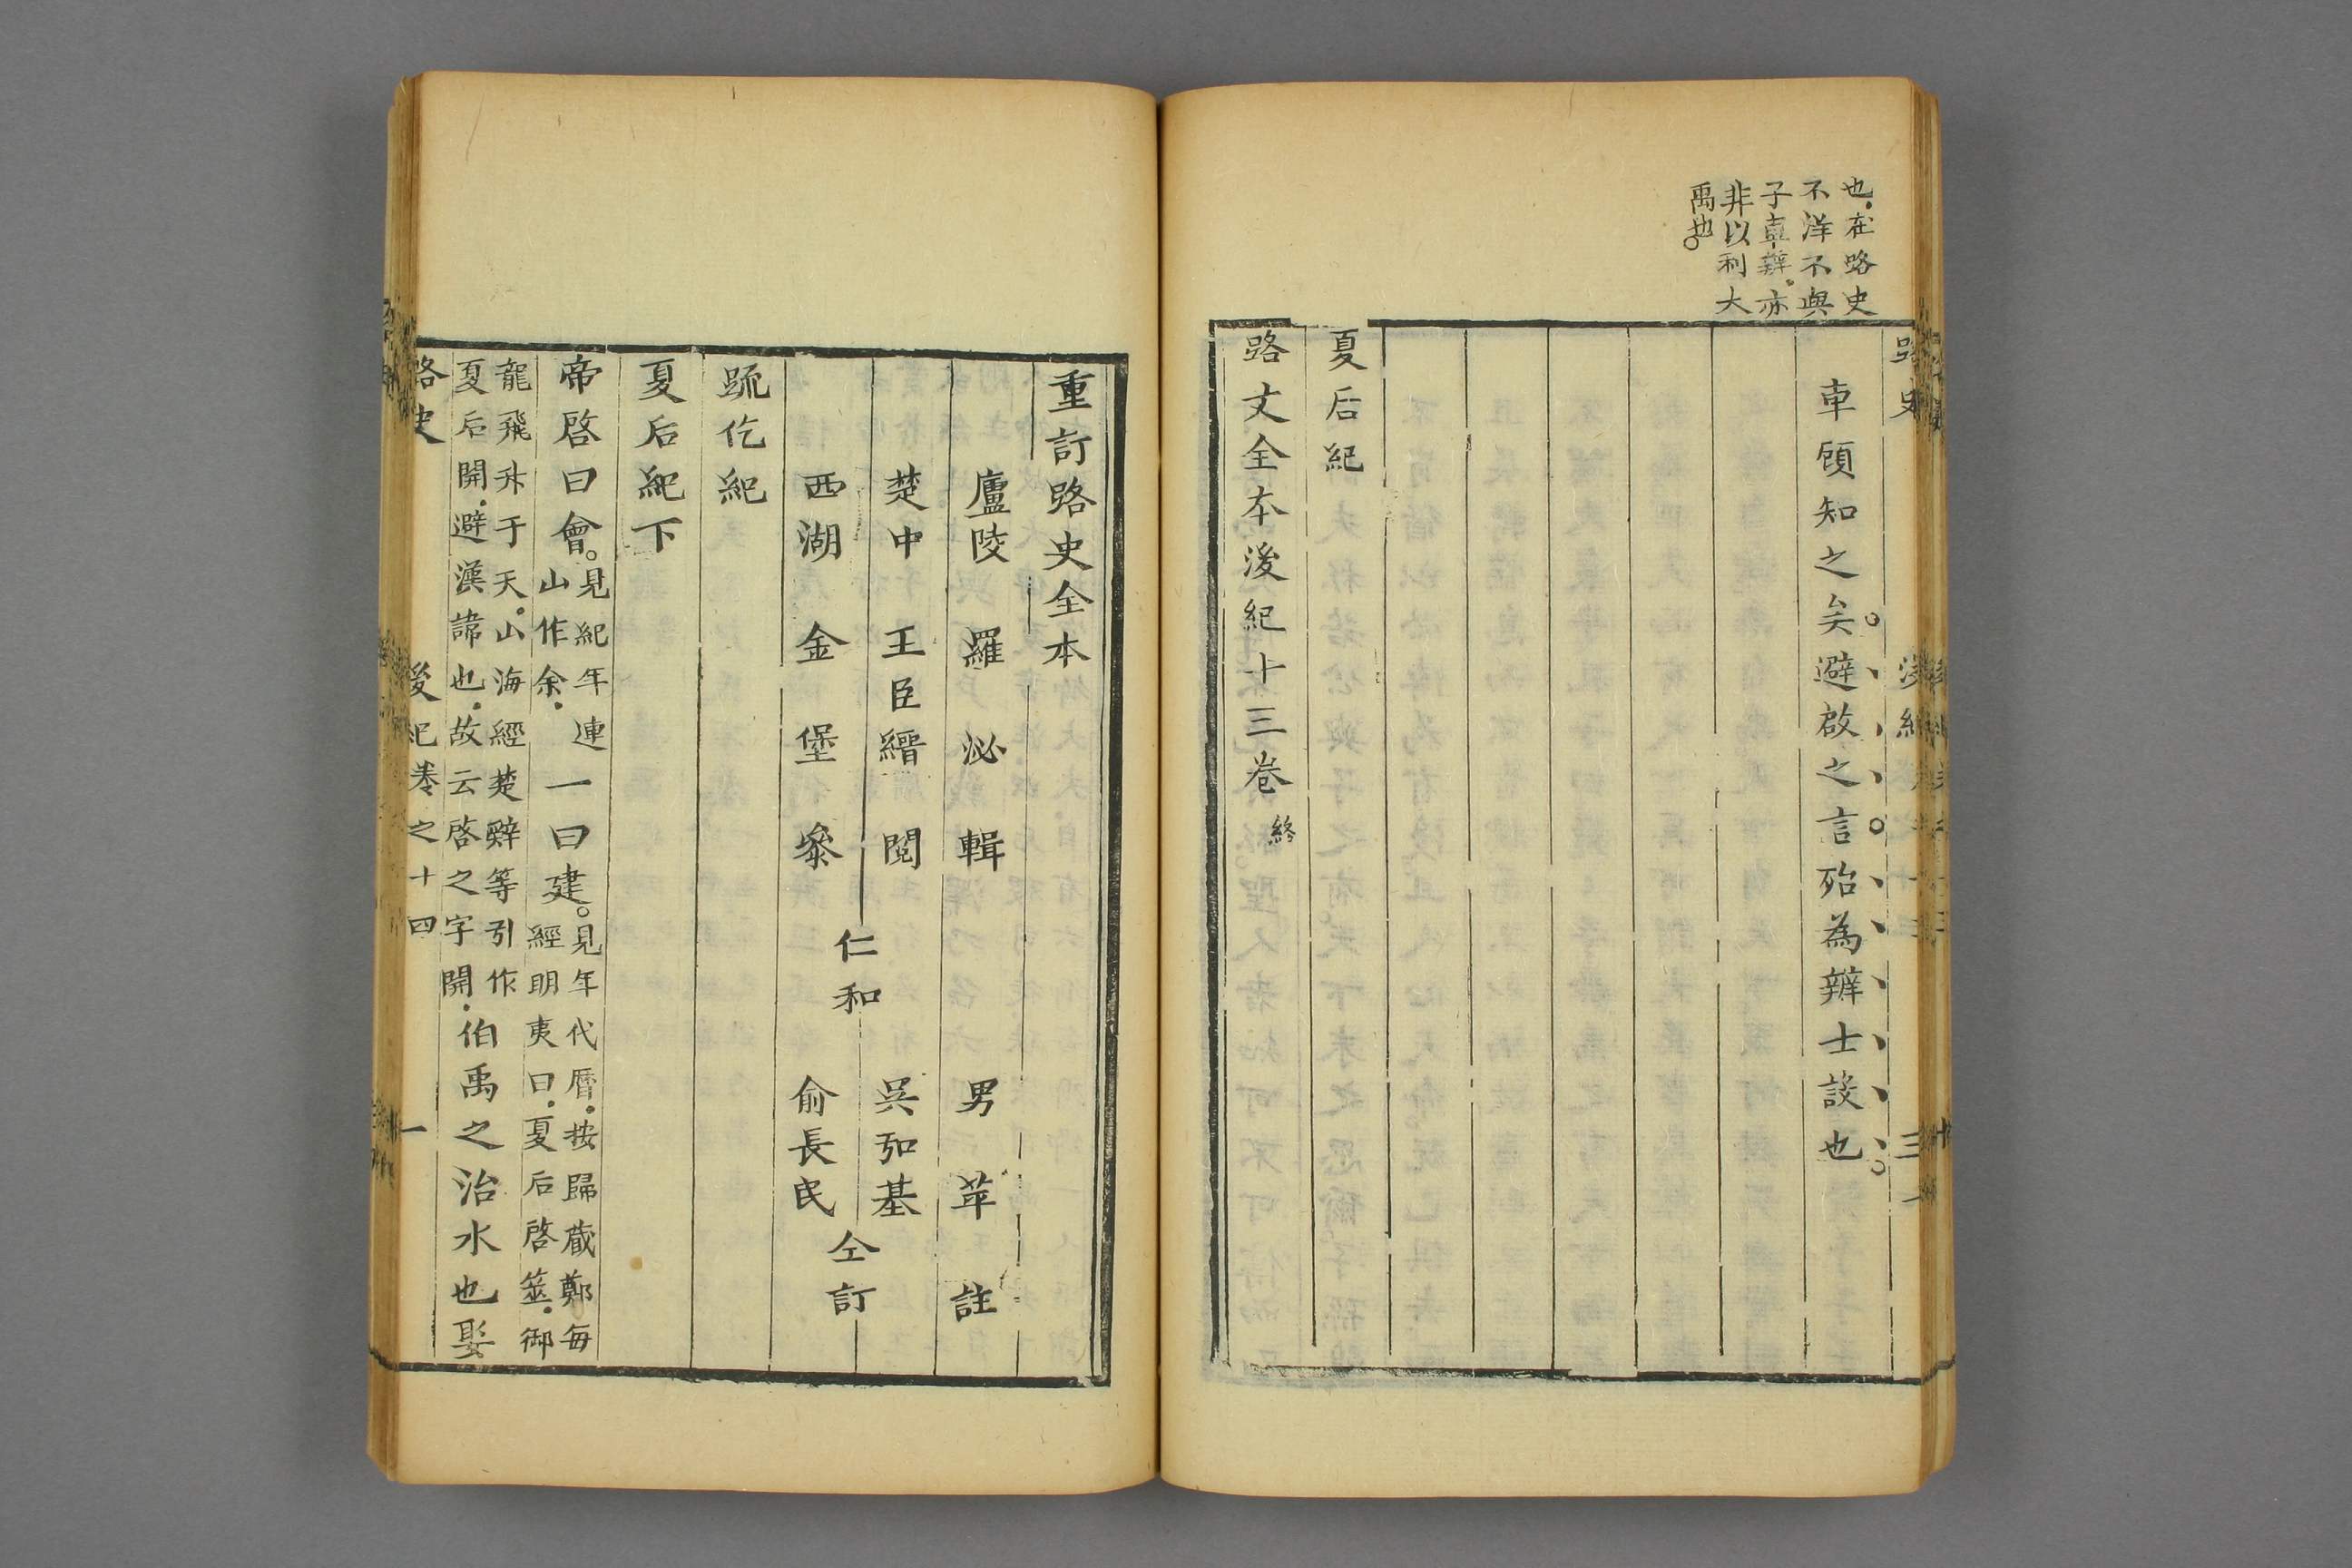 也在路史
不洋不與
子車辯亦
非以利大
禹也。
路史
車顧知之矣避啟之言殆為辨士設也
夏后紀
路文全本後紀十三卷終
重訂路史全本
廬陵 羅泌輯 男苹註
楚中 王臣縉閱 吳弘基
仁和 仝訂
西湖 金堡叅 俞長民
疏仡紀
夏后紀下
帝啓曰會。見紀年連
山作余
一曰建。見年代曆按歸蔵鄭毎
經明夷曰夏后啓筮御
龍飛升于天。山海經楚辭等引作
夏后開避漢諱也故云啓之字開
伯禹之治水也娶
路史 後紀卷之十四 一